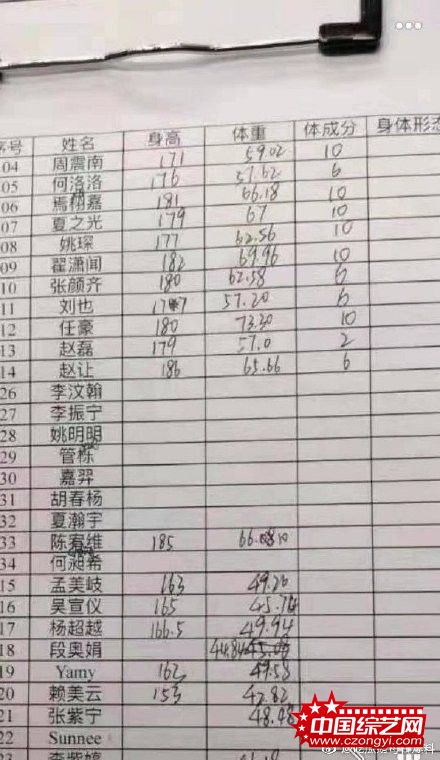 序号 姓名 身高 体重 体成分 身体形态
04 周震南 171 59.02 10
05 何洛洛 176 57.62 6
06 焉栩嘉 181 66.18 10
07 夏之光 179 67 10
08 姚琛 177 62.56 10
09 翟潇闻 182 69.96 10
10 张颜齐 180 62.58 6
11 刘也 177 57.20 6
12 任豪 180 73.30 10
13 赵磊 179 57.0 2
14 赵让 186 65.66 6
26 李汶翰
27 李振宁
28 姚明明
29 管栎
30 嘉羿
31 胡春杨
32 夏瀚宇
33 陈宥维 185 66.08 10
何昶希
15 孟美岐 163 49.20
16 吴宣仪 165 45.74
17 杨超越 166.5 49.94
18 段奥娟 44.84
19 Yamy 162 49.58
20 赖美云 153 42.82
21 张紫宁 48.98
22 Sunnee
23 李紫婷
中国综艺网
www.czongyi.com